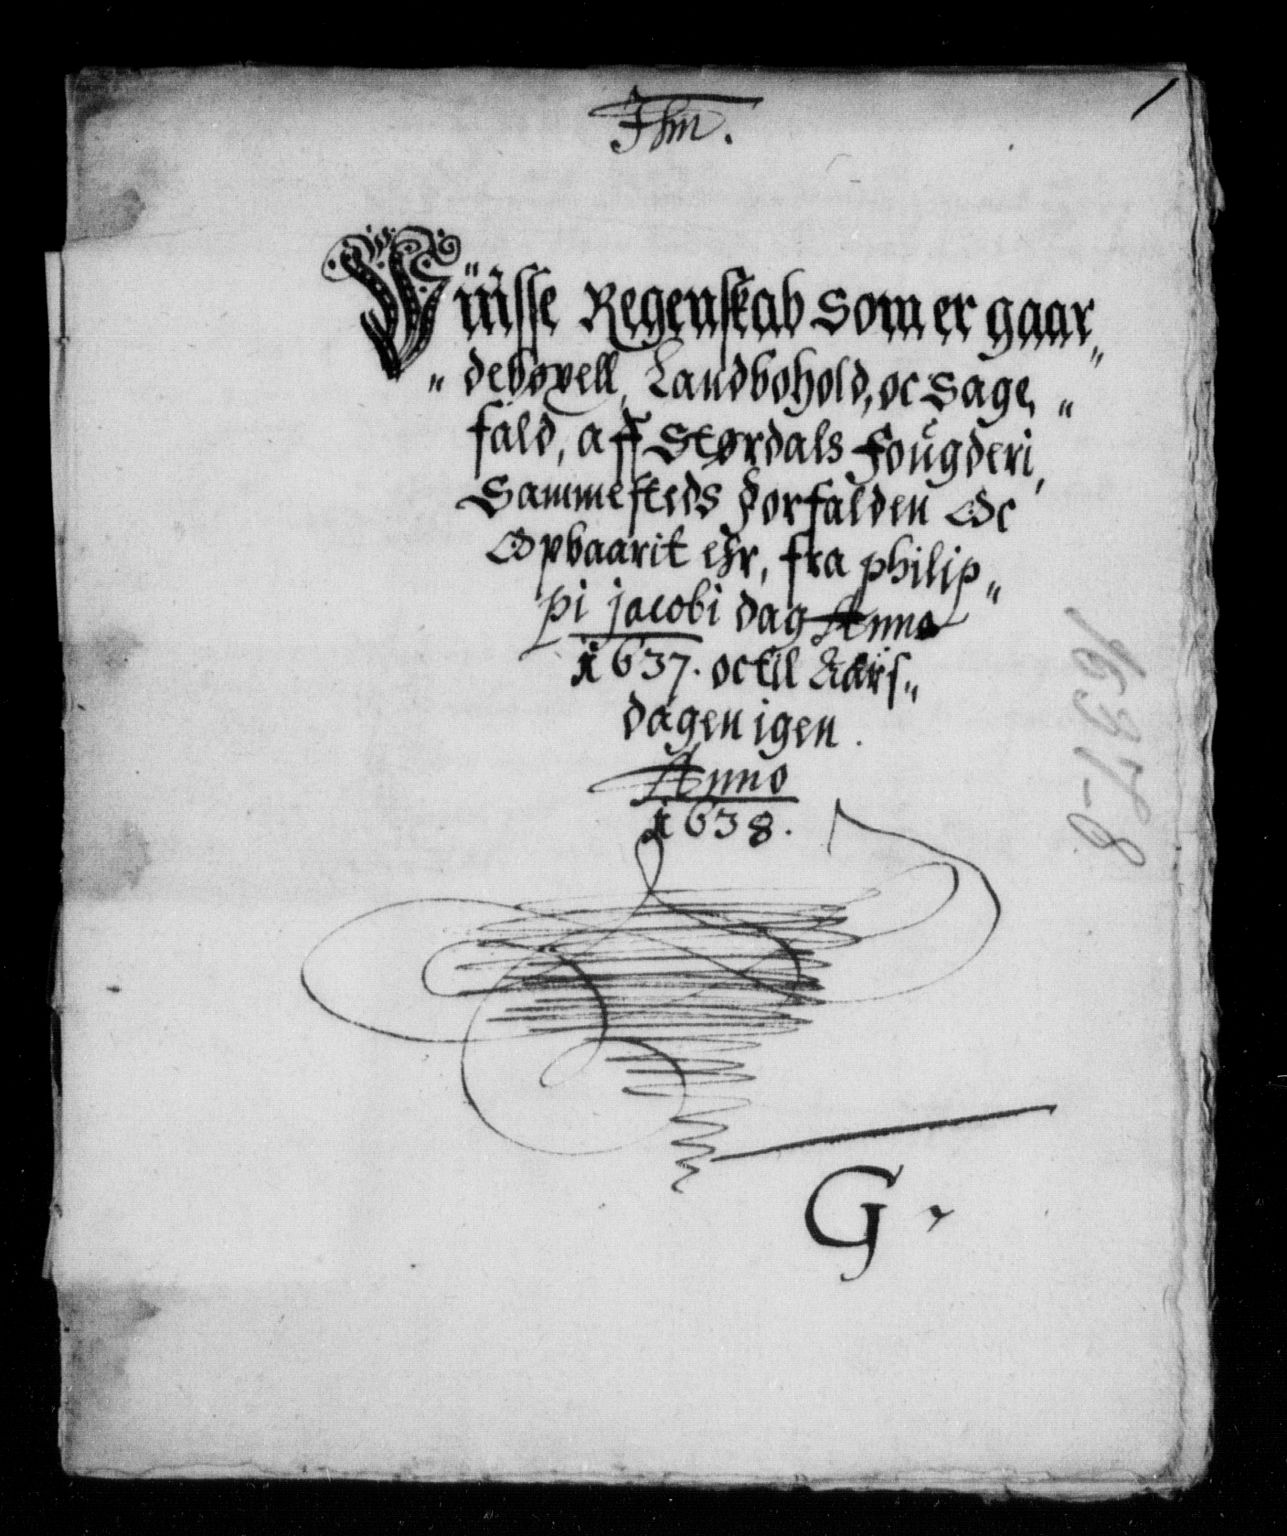 Jhm.
Vüisse Regenskab som er gaar„
„ debøxell, Landbohold, oc Sage„
fald, aff Størdals Fougderi,
Sammesteds forfalden Oc
Opbaarit ehr, fra philip„
pi jacobi dag Anno
1637. oc till Aars„
dagen igen.
Anno
1638.
G.
1637-8